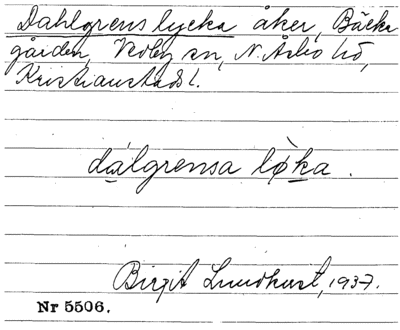 Dahlgrens lycka åker, Bäcka
gården, Vedby sn, N. Åsbo hd,
Kristianstads l.
dálgrensa lø̀ka.
Birgit Lundkvist, 1937.
Nr 5506.